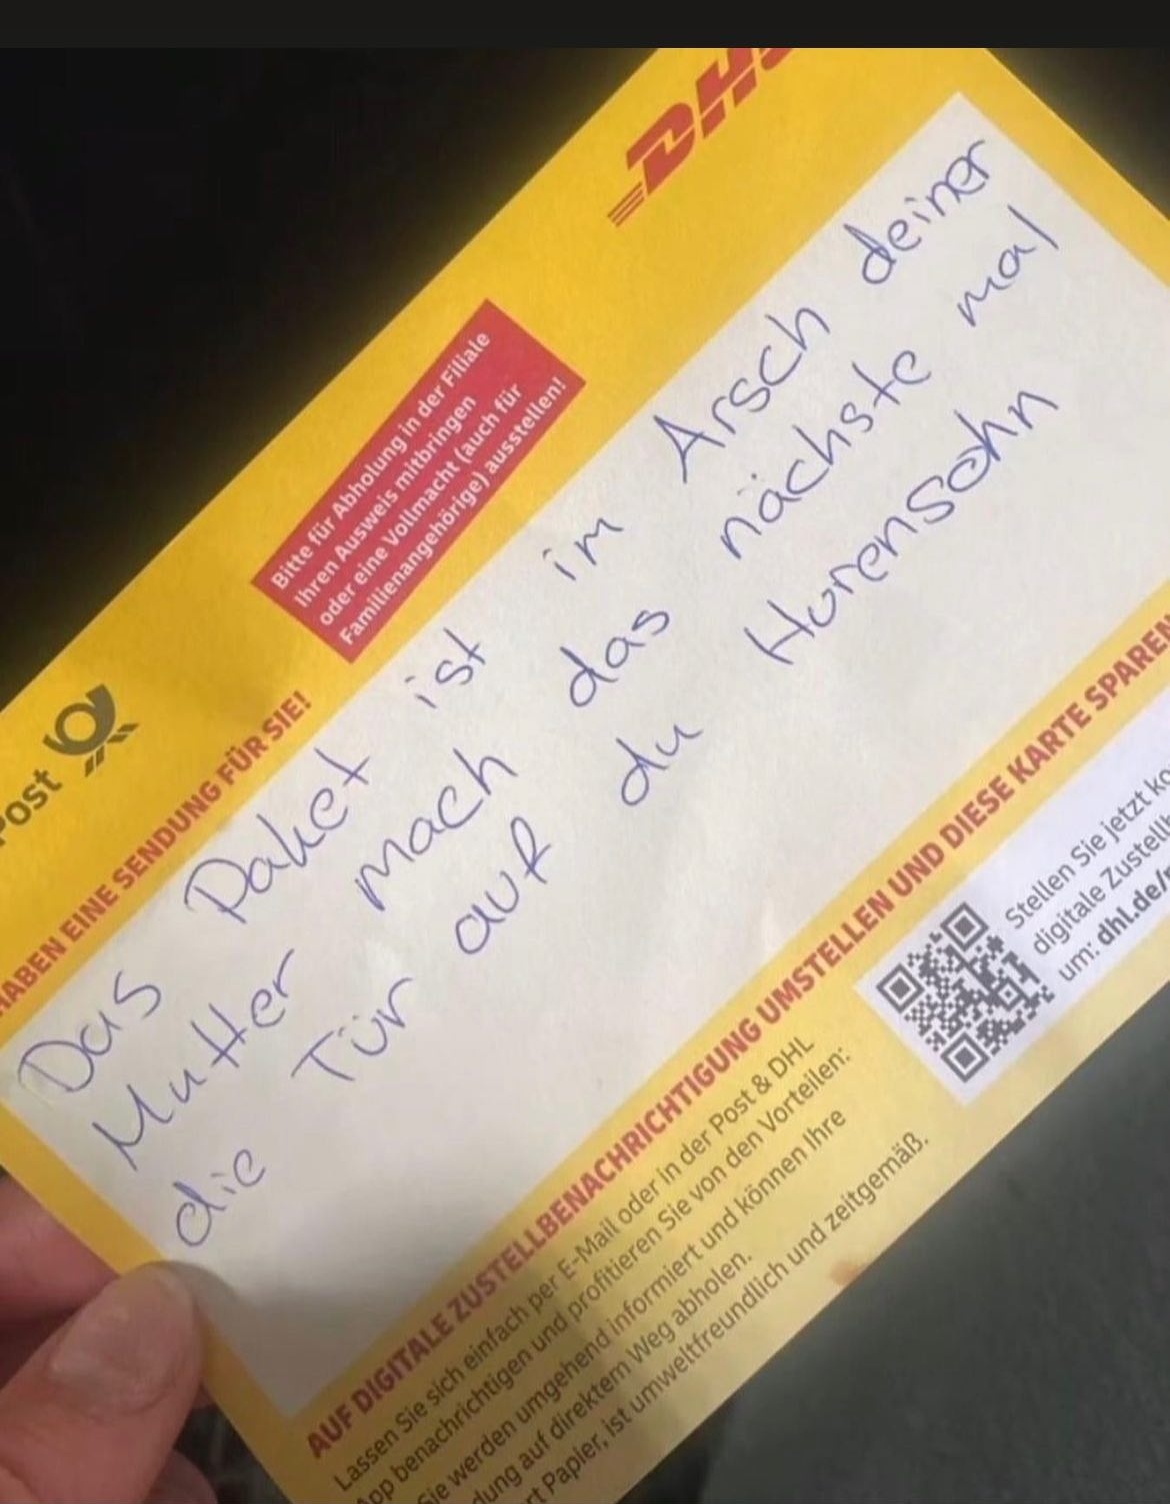 DHL
Bitte für Abholung in der Filiale
Ihren Ausweis mitbringen
oder eine Vollmacht (auch für
Familienangehörige) ausstellen!
Post
HABEN EINE SENDUNG FÜR SIE!
Das Paket ist im Arsch deiner
Mutter mach das nächste mal
die Tür auf du Hurensohn
AUF DIGITALE ZUSTELLBENACHRICHTIGUNG UMSTELLEN UND DIESE KARTE SPAREN
Lassen Sie sich einfach per E-Mail oder in der Post & DHL
App benachrichtigen und profitieren Sie von den Vorteilen:
Sie werden umgehend informiert und können Ihre
dung auf direktem Weg abholen.
rt Papier, ist umweltfreundlich und zeitgemäß.
Stellen Sie jetzt
digitale
um: dhl.de/